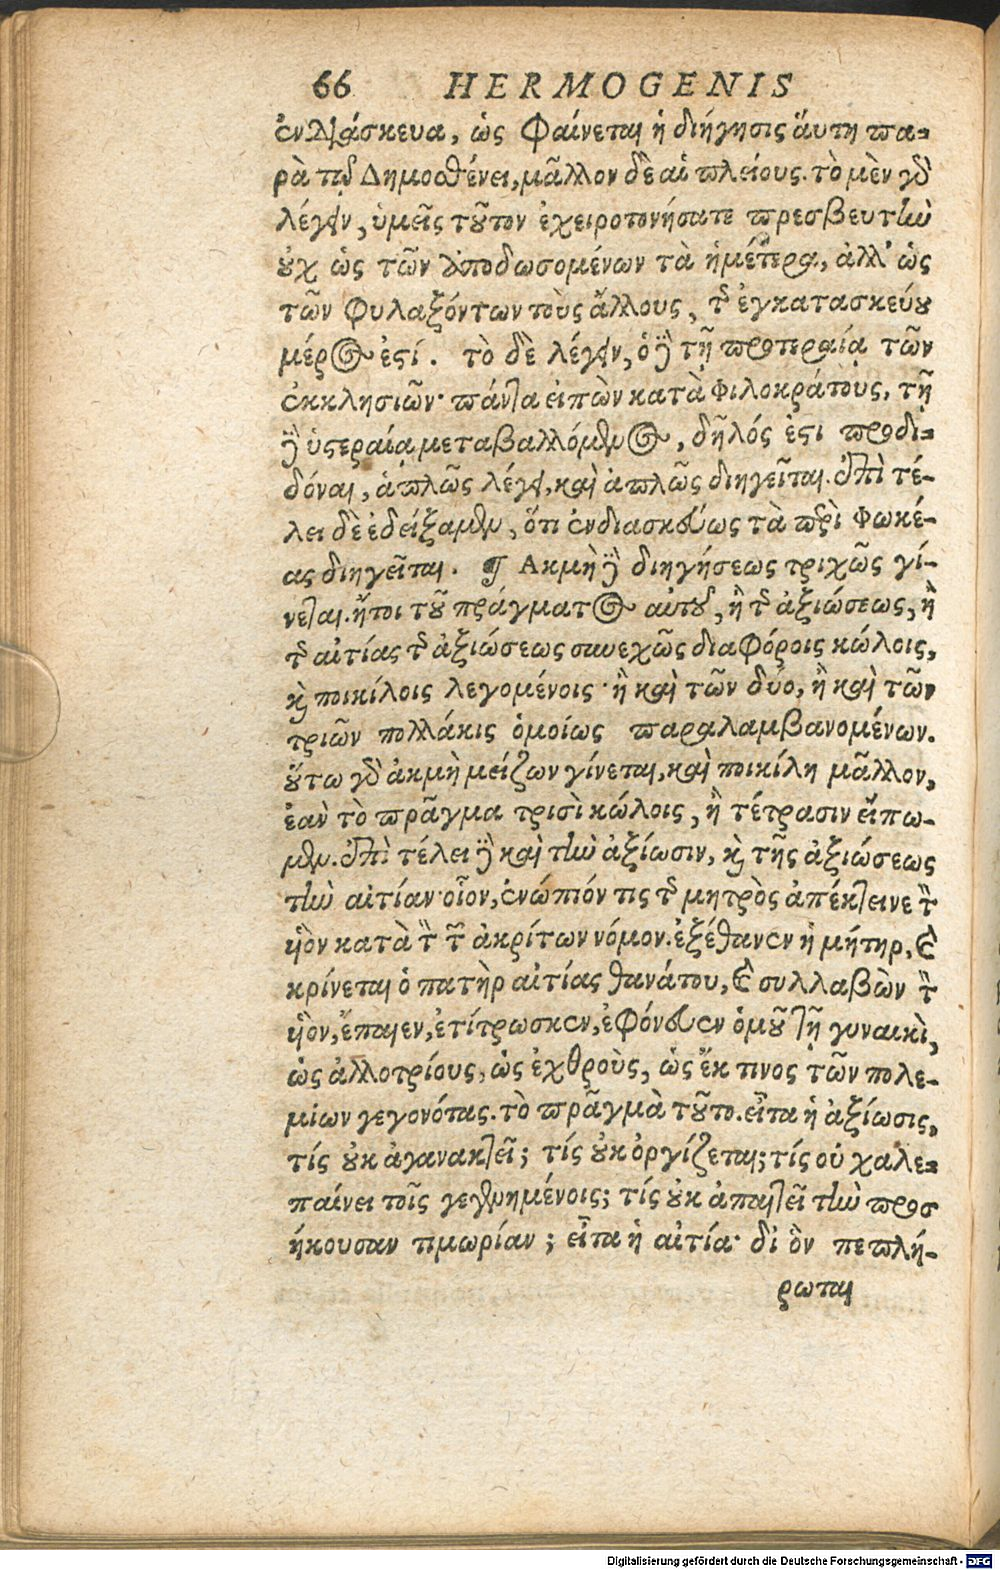 66 HERMOGENIS
ἐνδιάσκευα, ὡς φαίνεται ἡ διήγησις ἅυτη πα-
ρὰ τῷ Δημοσθένει, μᾶλλον δὲ αἱ πλείους. τὸ μὲν γὰρ
λέγειν, ὑμεῖς τοῦτον ἐχειροτονήσατε πρεσβευτὴν
οὐχ ὡς τῶν ἀποδωσομένων τὰ ἡμέτερα, ἀλλ' ὡς
τῶν φυλαξόντων τοὺς ἄλλους, τοῦ ἐγκατασκεύου
μέρος ἐστί. τὸ δὲ λέγειν, ὁ δὲ τῇ προτεραίᾳ τῶν
ἐκκλησιῶν· πάντα ἐιπὼν κατὰ Φιλοκράτους, τῇ
δὲ ὑστεραίᾳ μεταβαλλόμενος, δῆλός ἐστι προδι-
δόναι, ἁπλῶς λέγει, καὶ ἁπλῶς διηγεῖται. ἐπὶ τέ-
λει δὲ ἐδείξαμεν, ὅτι ἐνδιασκεύως τὰ περὶ Φωκέ-
ας διηγεῖται. ¶ Ακμὴ δὲ διηγήσεως τριχῶς γί-
νεται. ἤτοι τοῦ πράγματος αὐτοῦ, ἢ τοῦ ἀξιώσεως, ἢ
τοῦ αἰτίας τοῦ ἀξιώσεως συνεχῶς διαφόροις κώλοις,
καὶ ποικίλοις λεγομένοις· ἢ καὶ τῶν δύο, ἢ καὶ τῶν
τριῶν πολλάκις ὁμοίως παραλαμβανομένων.
οὕτω γὰρ ἀκμὴ μείζων γίνεται, καὶ ποικίλη μᾶλλον,
ἐὰν τὸ πρᾶγμα τρισὶ κώλοις, ἢ τέτρασιν εἴπω-
μεν. ἐπὶ τέλει δὲ καὶ τὴν ἀξίωσιν, καὶ τῆς ἀξιώσεως
τὴν αἰτίαν· οἷον, ἐνώπιόν τις τοῦ μητρὸς ἀπέκτεινε τὸν
υἱὸν κατὰ τὸν τῶν ἀκρίτων νόμον. ἐξέθανεν ἡ μήτηρ, καὶ
κρίνεται ὁ πατὴρ αἰτίας θανάτου, καὶ συλλαβὼν τὸν
υἱὸν, ἔπαιεν, ἐτίτρωσκεν, ἐφόνευεν ὁμοῦ τῇ γυναικὶ,
ὡς ἀλλοτρίους, ὡς ἐχθροὺς, ὡς ἔκ τινος τῶν πολε-
μίων γεγονότας. τὸ πρᾶγμὰ τοῦτο. εἶτα ἡ ἀξίωσις,
τίς οὐκ ἀγανακτεῖ; τίς οὐκ ὀργίζεται; τίς οὐ χαλε-
παίνει τοῖς γεγενημένοις; τίς οὐκ ἀπαιτεῖ τὴν προσ
ήκουσαν τιμωρίαν; εἶτα ἡ αἰτία· δι' ὃν πεπλή-
ρωται
Digitalisierung gefördert durch die Deutsche Forschungsgemeinschaft - DFG